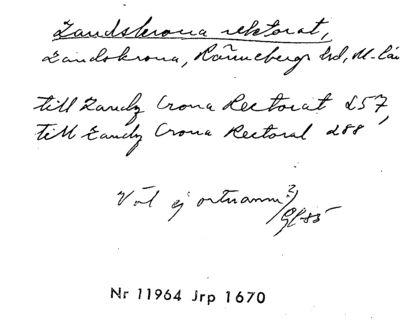 Landskrona rektorat,
Landskrona, Rönnebergs hd, M-län
till Landz Crona Rectorat 257,
till Landz Crona Rectorat 288
Väl ej ortnamn?/
Nr 11964 Jrp 1670